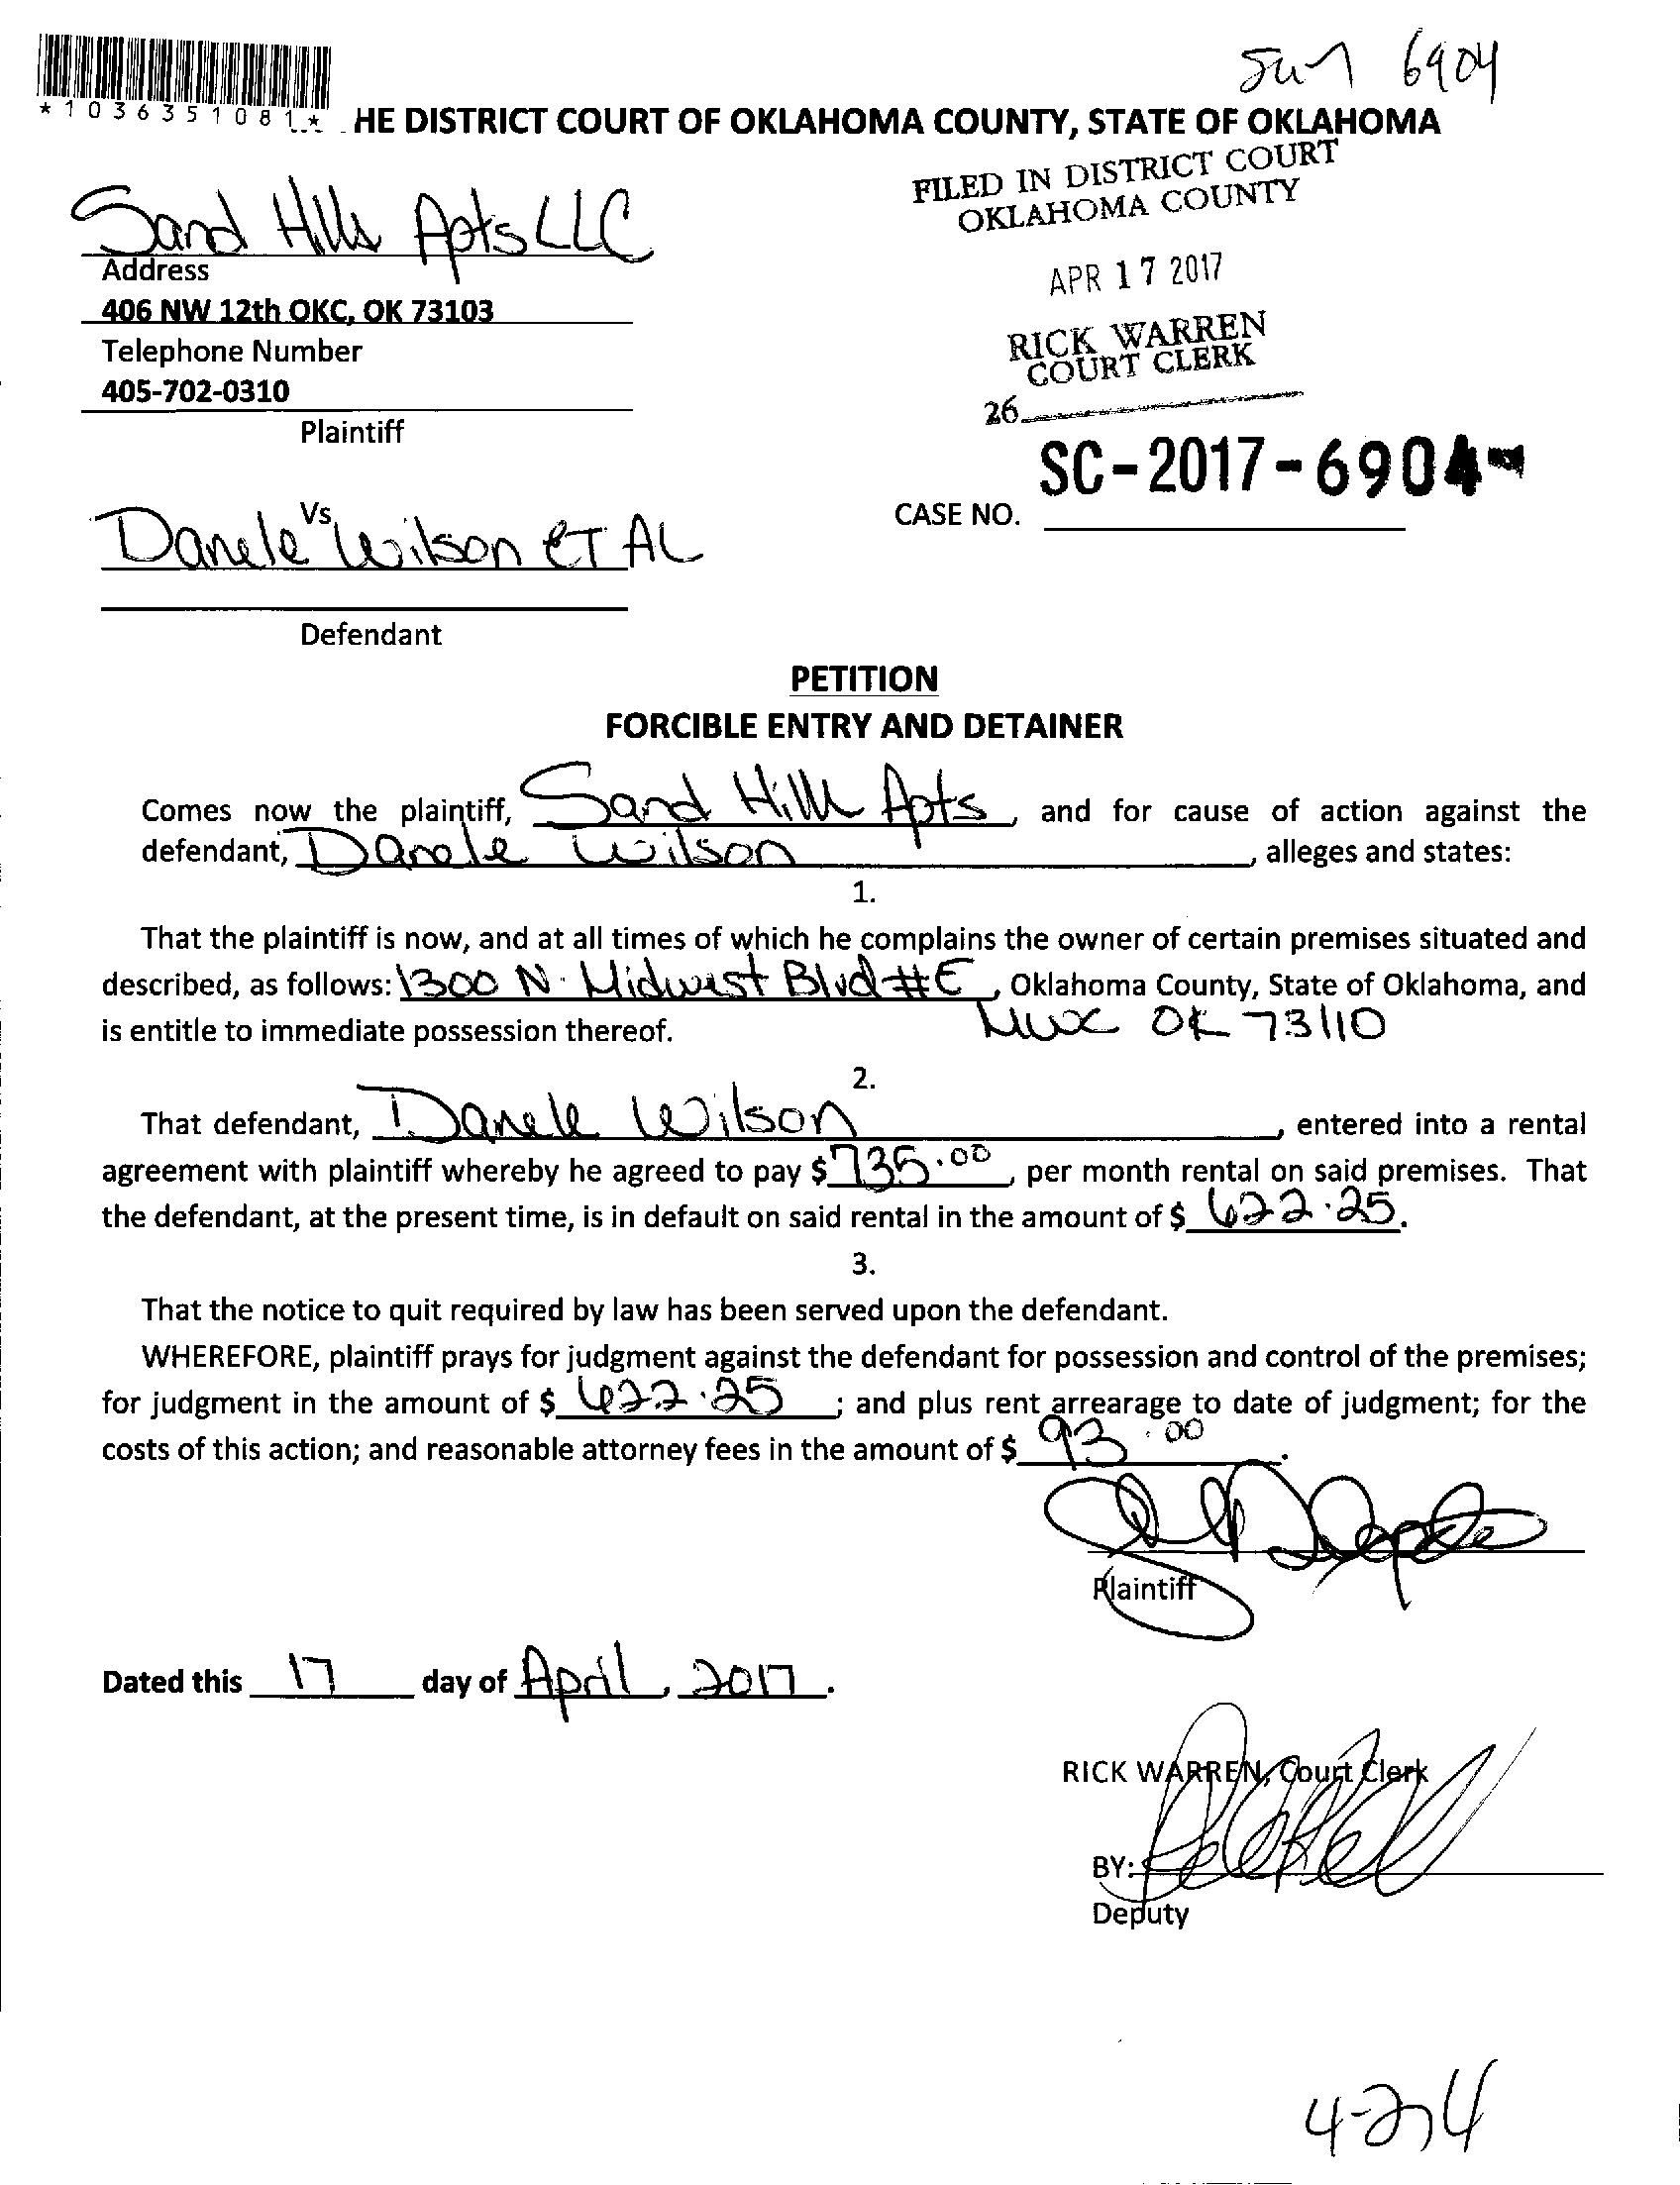 6904
*1036351081*
HE DISTRICT COURT OF OKLAHOMA COUNTY, STATE OF OKLAHOMA
FILED IN DISTRICT COURT
OKLAHOMA COUNTY
APR 17 2017
RICK WARREN
COURT CLERK
26
Sand Hills Apts LLC
Address
406 NW 12th OKC, OK 73103
Telephone Number
405-702-0310
Plaintiff
SC-2017-6904
CASE NO.
Vs
Danele Wilson ET AL
Defendant
PETITION
FORCIBLE ENTRY AND DETAINER
Comes now the plaintiff, Sand Hills Apts, and for cause of action against the
defendant, Danele Wilson, alleges and states:
1.
That the plaintiff is now, and at all times of which he complains the owner of certain premises situated and
described, as follows: 1300 N. Midwest Blvd #E, Oklahoma County, State of Oklahoma, and
is entitle to immediate possession thereof. MWC OK 73110
2.
That defendant, Danele Wilson, entered into a rental
agreement with plaintiff whereby he agreed to pay $735.00, per month rental on said premises. That
the defendant, at the present time, is in default on said rental in the amount of $ 622.25.
3.
That the notice to quit required by law has been served upon the defendant.
WHEREFORE, plaintiff prays for judgment against the defendant for possession and control of the premises;
for judgment in the amount of $ 622.25; and plus rent arrearage to date of judgment; for the
costs of this action; and reasonable attorney fees in the amount of $ 93.00.
Plaintiff
Dated this 17 day of April, 2017.
RICK WARREN, Court Clerk
BY:
Deputy